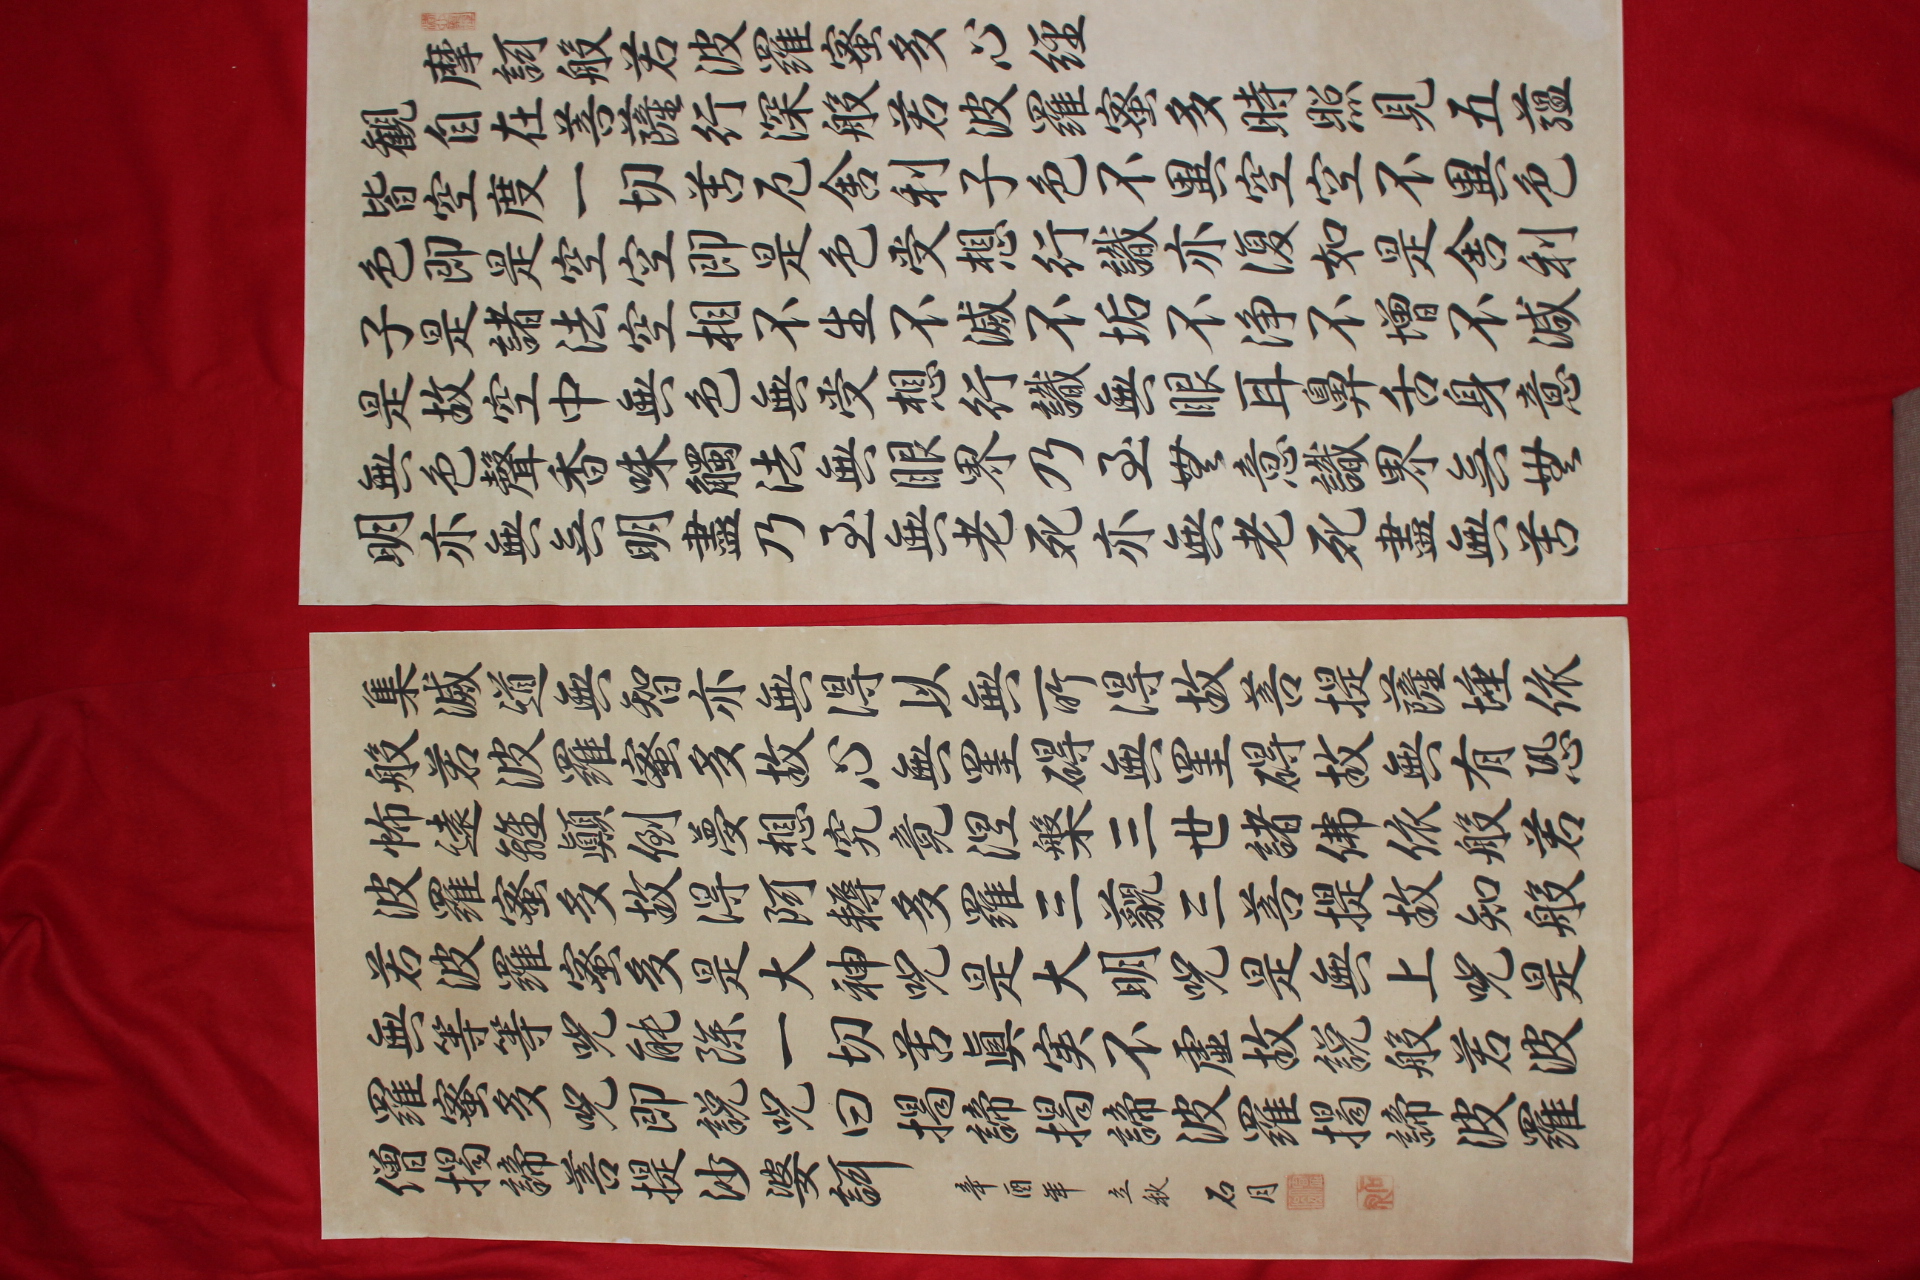 摩訶般若波羅蜜多心経
観自在菩薩行深般若波羅蜜多時照見五蘊
皆空度一切苦厄舎利子色不異空空不異色
色即是空空即是色受想行識亦復如是舎利
子是諸法空相不生不滅不垢不浄不増不減
是故空中無色無受想行識無眼耳鼻舌身意
無色聲香味觸法無眼界乃至無意識界無無
明亦無無明盡乃至無老死亦無老死盡無苦
集滅道無智亦無得以無所得故菩提薩埵依
般若波羅蜜多故心無罣碍無罣碍故無有恐
怖遠離顛倒夢想究竟涅槃三世諸佛依般若
波羅蜜多故得阿耨多羅三藐三菩提故知般
若波羅蜜多是大神呪是大明呪是無上呪是
無等等呪能除一切苦眞実不虚故説般若波
羅蜜多呪即説呪曰揭諦揭諦波羅揭諦波羅
僧揭諦菩提沙婆訶
辛酉年 立秋 石月